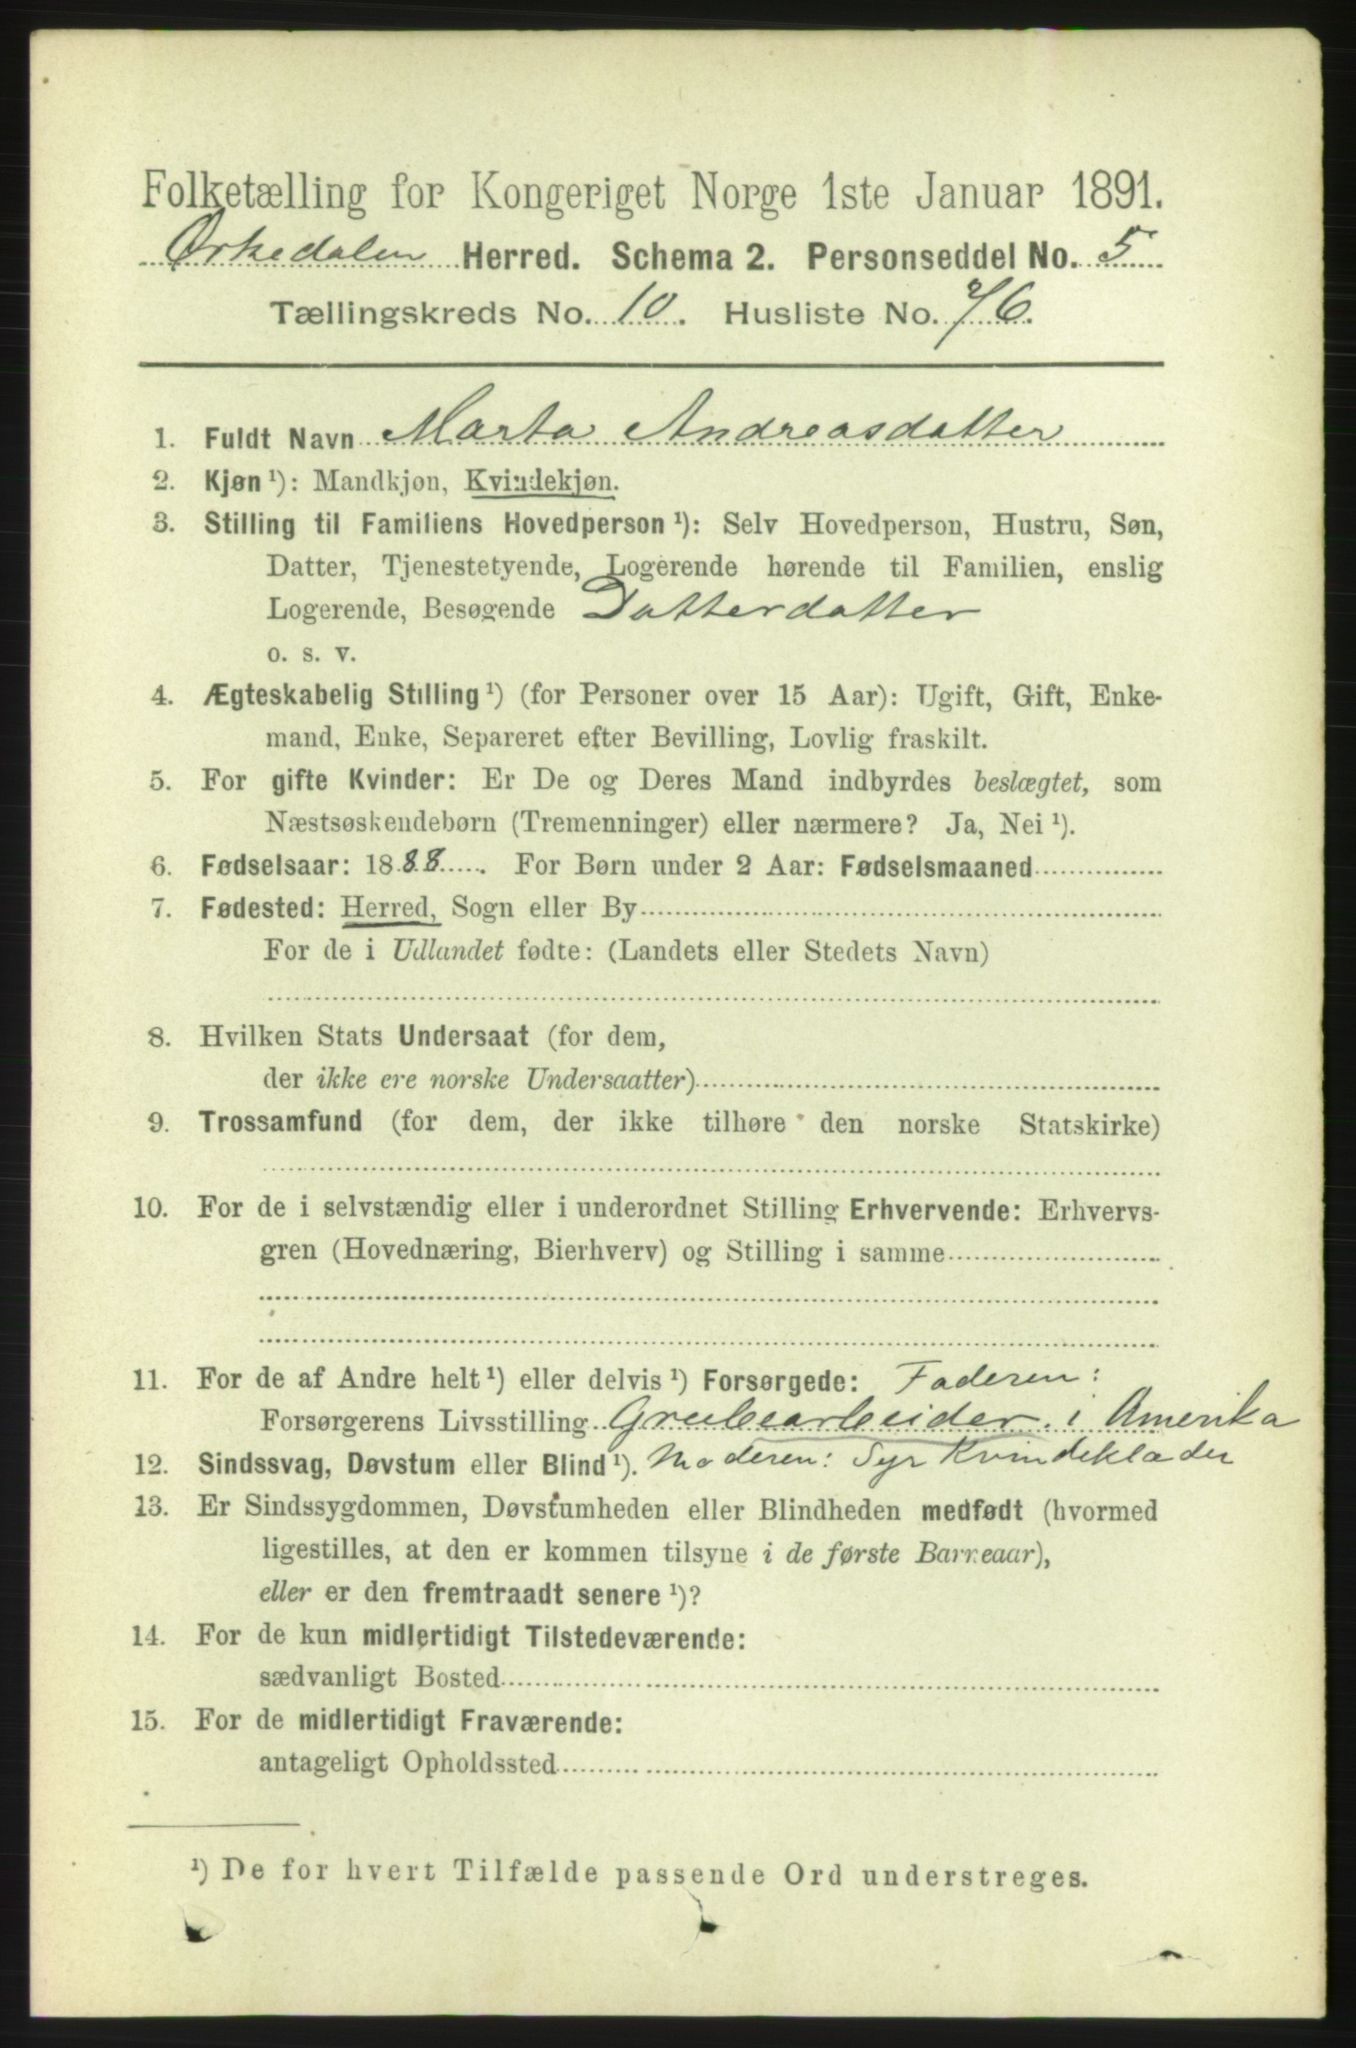 Folketælling for Kongeriget Norge 1ste Januar 1891.
Ørkedalen Herred. Schema 2. Personseddel No. 5
Tællingskreds No. 10. Husliste No. 76.
1. Fuldt Navn Marta Andreasdatter
2. Kjøn ¹): Mandkjøn, Kvindekjøn.
3. Stilling til Familiens Hovedperson ¹): Selv Hovedperson, Hustru, Søn,
Datter, Tjenestetyende, Logerende hørende til Familien, enslig
Logerende, Besøgende Datterdatter
o. s. v.
4. Ægteskabelig Stilling ¹) (for Personer over 15 Aar): Ugift, Gift, Enke-
mand, Enke, Separeret efter Bevilling, Lovlig fraskilt.
5. For gifte Kvinder: Er De og Deres Mand indbyrdes beslægtet, som
Næstsøskendebørn (Tremenninger) eller nærmere? Ja, Nei ¹).
6. Fødselsaar: 1888. For Børn under 2 Aar: Fødselsmaaned
7. Fødested: Herred, Sogn eller By
For de i Udlandet fødte: (Landets eller Stedets Navn)
8. Hvilken Stats Undersaat (for dem,
der ikke ere norske Undersaatter)
9. Trossamfund (for dem, der ikke tilhøre den norske Statskirke)
10. For de i selvstændig eller i underordnet Stilling Erhvervende: Erhvervs-
gren (Hovednæring, Bierhverv) og Stilling i samme
11. For de af Andre helt ¹) eller delvis ¹) Forsørgede: Faderen:
Forsørgerens Livsstilling Grubearbeider i Amerika
12. Sindssvag, Døvstum eller Blind ¹). Moderen: Syr Kvindeklæder
13. Er Sindssygdommen, Døvstumheden eller Blindheden medfødt (hvormed
ligestilles, at den er kommen tilsyne i de første Barneaar),
eller er den fremtraadt senere ¹)?
14. For de kun midlertidigt Tilstedeværende:
sædvanligt Bosted
15. For de midlertidigt Fraværende:
antageligt Opholdssted
¹) De for hvert Tilfælde passende Ord understreges.